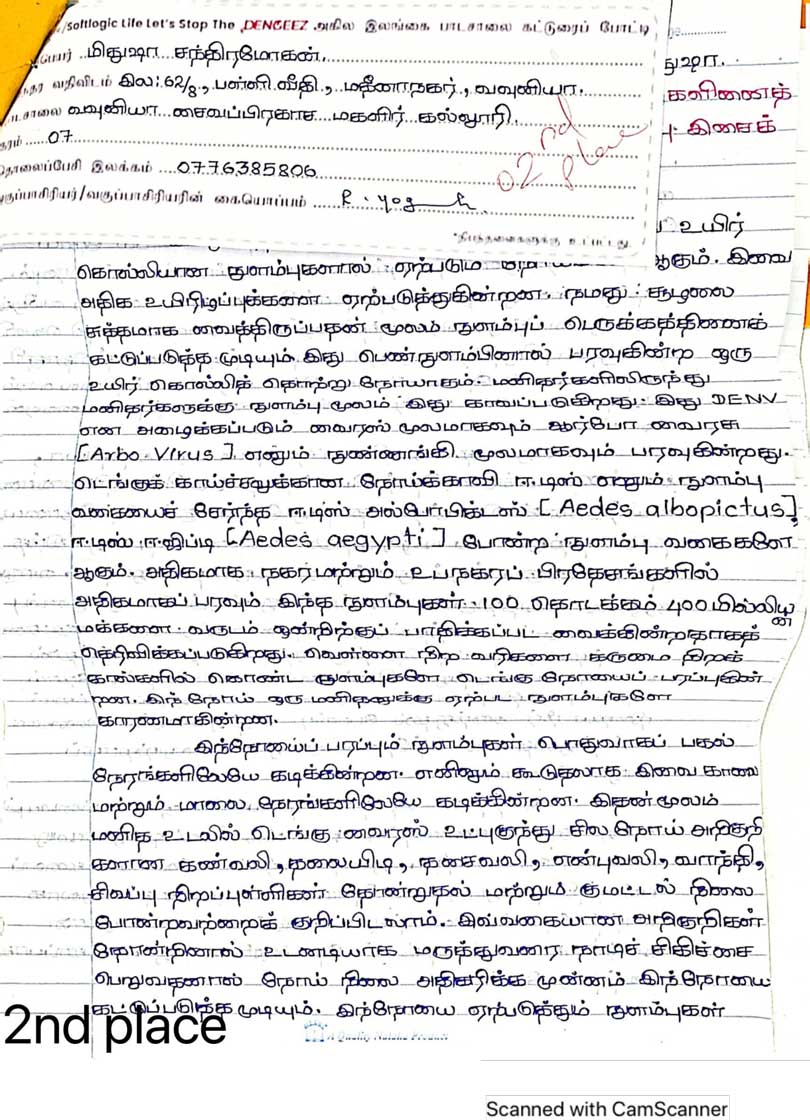 /Softlogic Life Let's Stop The DENGEEZ அகில இலங்கை பாடசாலை கட்டுரைப் போட்டி
பெயர் மிதுஷா சந்திரமோகன்.
வதிவிடம் இல: 62/8, பள்ளி வீதி, மதீனாநகர், வவுனியா.
வவுனியா சைவப்பிரகாச மகளிர் கல்லூரி.
தரம் 07
தொலைப்பேசி இலக்கம் 0776385806
வகுப்பாசிரியர்/வகுப்பாசிரியரின் கையொப்பம்
02nd place
*நிபந்தனைகளுக்கு உட்பட்டது.
துஷா.
களினைத்
இசைக்
உயிர்
கொல்லியான நுளம்புகளால் ஏற்படும் ஆகும். இவை
அதிக உயிரிழப்புக்களை ஏற்படுத்துகின்றன. நமது சூழலை
சுத்தமாக வைத்திருப்பதன் மூலம் நுளம்புப் பெருக்கத்தினைக்
கட்டுப்படுத்த முடியும். இது பெண்நுளம்பினால் பரவுகின்ற ஒரு
உயிர் கொல்லித் தொற்று நோயாகும். மனிதர்களிலிருந்து
மனிதர்களுக்கு நுளம்பு மூலம் இது காவப்படுகிறது. இது DENV
என அழைக்கப்படும் வைரஸ் மூலமாகவும் ஆர்போ வைரசு
[Arbo Virus] எனும் நுண்ணங்கி மூலமாகவும் பரவுகின்றது.
டெங்குக் காய்ச்சலுக்கான நோய்க்காவி ஈடிஸ் எனும் நுளம்பு
வகையைச் சேர்ந்த ஈடிஸ் அல்போபிக்டஸ் [Aedes albopictus],
ஈடிஸ் ஈஜிப்டி [Aedes aegypti] போன்ற நுளம்பு வகைகளே
ஆகும். அதிகமாக நகர மற்றும் உபநகரப் பிரதேசங்களில்
அதிகமாகப் பரவும் இந்த நுளம்புகள் 100 தொடக்கம் 400 மில்லியன்
மக்களை வருடம் ஒன்றிற்குப் பாதிக்கப்பட வைக்கின்றதாகத்
தெரிவிக்கப்படுகிறது. வெள்ளை நிற வரிகளை கருமை நிறக்
கால்களில் கொண்ட நுளம்புகளே டெங்கு நோயைப் பரப்புகின்
றன. இந் நோய் ஒரு மனிதனுக்கு ஏற்பட நுளம்புகளே
காரணமாகின்றன.
இந்நோயைப் பரப்பும் நுளம்புகள் பொதுவாகப் பகல்
நேரங்களிலேயே கடிக்கின்றன. எனினும் கூடுதலாக இவை காலை
மற்றும் மாலை நேரங்களிலேயே கடிக்கின்றன. இதன் மூலம்
மனித உடலில் டெங்கு வைரஸ் உட்புகுந்து சில நோய் அறிகுறி
களான கண்வலி, தலையிடி, தசைவலி, என்புவலி, வாந்தி,
சிவப்பு நிறப்புள்ளிகள் தோன்றுதல் மற்றும் குமட்டல் நிலை
போன்றவற்றைக் குறிப்பிடலாம். இவ்வகையான அறிகுறிகள்
தோன்றினால் உடனடியாக மருத்துவரை நாடிச் சிகிச்சை
பெறுவதனால் நோய் நிலை அதிகரிக்க முன்னம் இந்நோயை
கட்டுப்படுத்த முடியும். இந்நோயை ஏற்படுத்தும் நுளம்புகள்
2nd place
Scanned with CamScanner